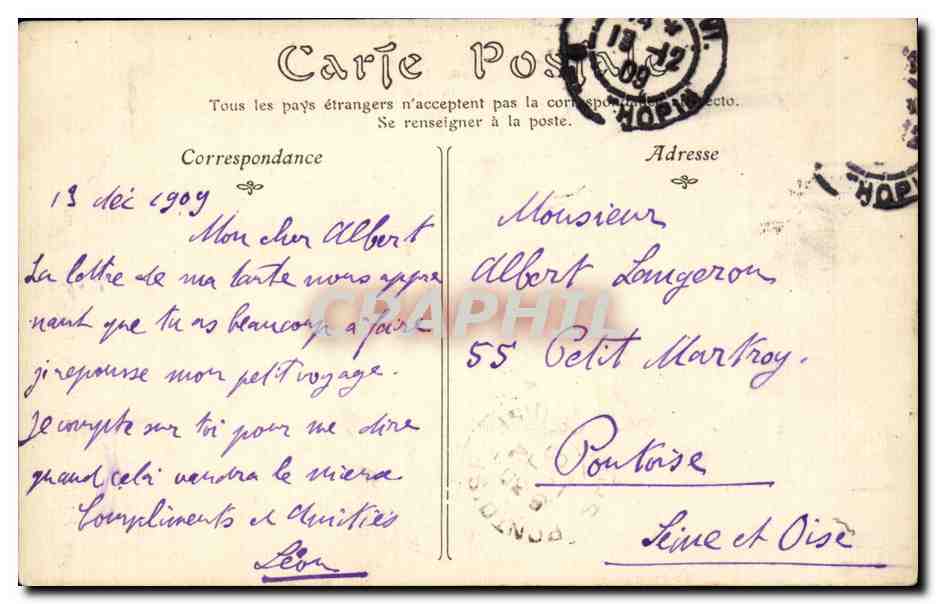 Carte Postale
Tous les pays étrangers n'acceptent pas la correspondance au recto.
Se renseigner à la poste.
Correspondance
13 déc 1909
Mon cher Albert
La lettre de ma tante nous appre
nant que tu as beaucoup à faire
je repousse mon petit voyage.
Je compte sur toi pour me dire
quand cela vaudra le mieux
Compliments et Amitiés
Léon
Adresse
Monsieur
Albert Langeron
55 Petit Martroy.
Pontoise
Seine et Oise
12
09
HOPIT
HOPIT
PONTOISE
CPAPHIL